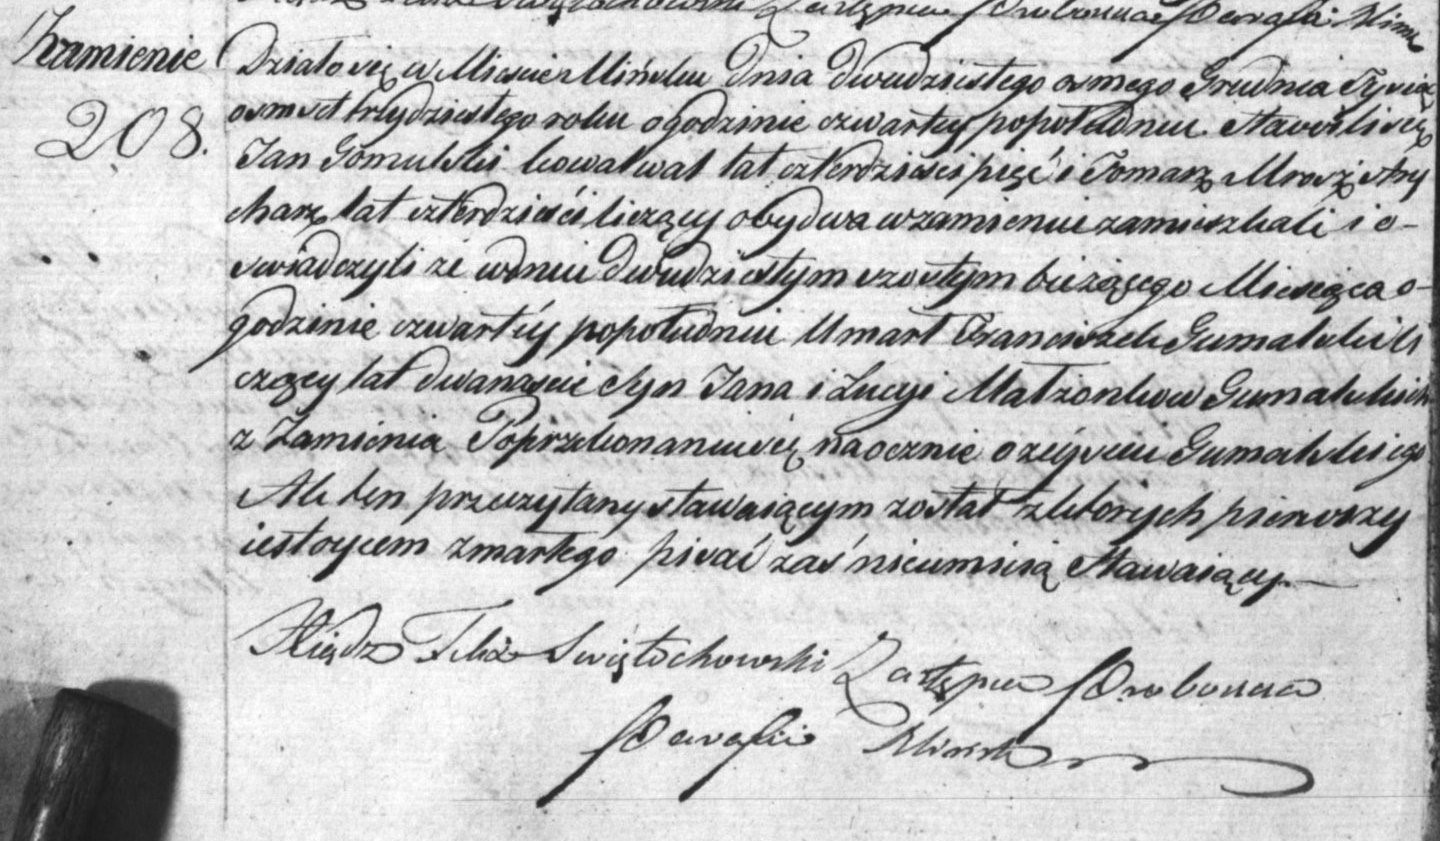 Zamienie
208.
Zastępca Proboszcza Parafii Mińs
Działo się w Miescie Mińsku dnia dwudziestego osmego Grudnia Tysiąc
osmset trzydziestego roku o godzinie czwartey popołudniu. Stawili się
Jan Gomulski kowal lat czterdzieści pięć i Tomasz Mroz stry
charz lat czterdzieści liczący obydwa w zamieniu zamieszkali i o-
swiadczyli że w dniu dwudziestym szostym bieżącego Miesiąca o-
godzinie czwartey popołudniu Umarł Franciszek Gumalski li
czący lat dwanascie Syn Jana i Lucyi Małzonkow Gumalskich
z Zamienia Poprzekonaniu się naocznie o zeyściu Gumalskiego
Akt ten przeczytany stawaiącym został z ktorych pierwszy
iest oycem zmarłego pisać zaś nieumieią Stawaiący.—
Xiądz Felix Swiętochowski Zastępca Proboszcza
Parafii Mińsk